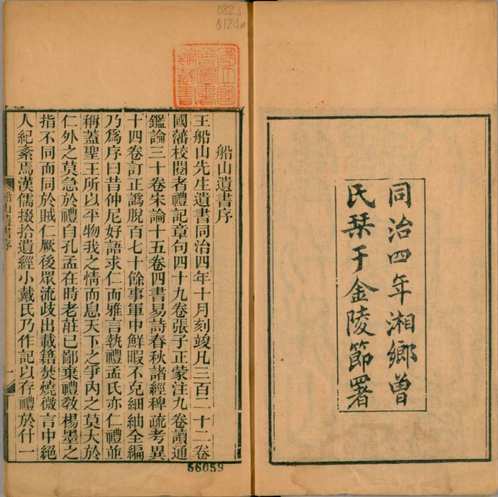 同治四年湘鄉曾
氏栞于金陵節署
船山遺書序
王船山先生遺書同治四年十月刻竣凡三百二十二卷
國藩校閱者禮記章句四十九卷張子正蒙注九卷讀通
鑑論三十卷宋論十五卷四書易詩春秋諸經稗疏考異
十四卷訂正譌脫百七十餘事軍中鮮暇不克細紬全編
乃爲序曰昔仲尼好語求仁而雅言執禮孟氏亦仁禮並
稱蓋聖王所以平物我之情而息天下之爭內之莫大於
仁外之莫急於禮自孔孟在時老莊已鄙棄禮教楊墨之
指不同而同於賊仁厥後眾流歧出載籍焚燒微言中絕
人紀紊焉漢儒掇拾遺經小戴氏乃作記以存禮於什一
56059